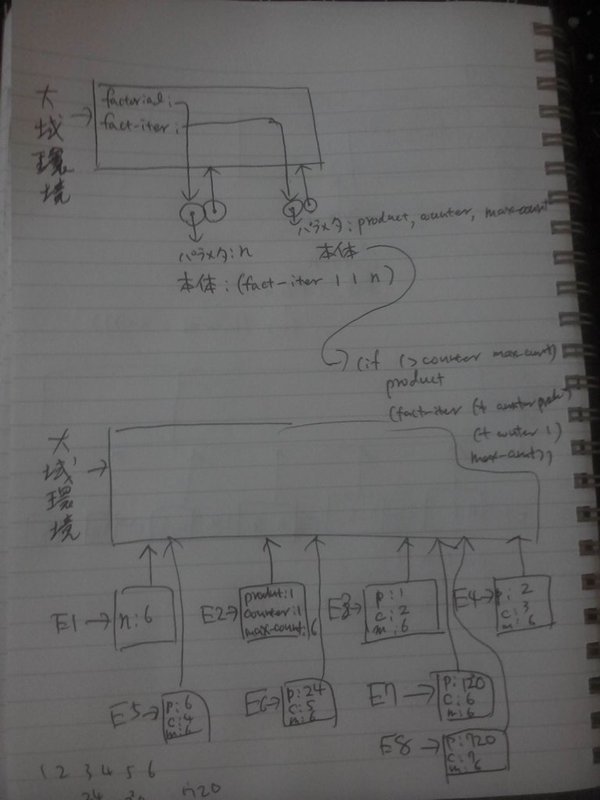 大域環境
factorial:
fact-iter:
パラメタ:n
本体:(fact-iter 1 1 n)
パラメタ:product, counter, max-count
本体
(if (> counter max-count)
product
(fact-iter (* counter product)
(+ counter 1)
max-count))
大域環境
E1 n:6
E2 product:1
counter:1
max-count:6
E3 p:1
c:2
m:6
E4 p:2
c:3
m:6
E5 p:6
c:4
m:6
E6 p:24
c:5
m:6
E7 p:120
c:6
m:6
E8 p:720
c:7
m:6
1 2 3 4 5 6
24